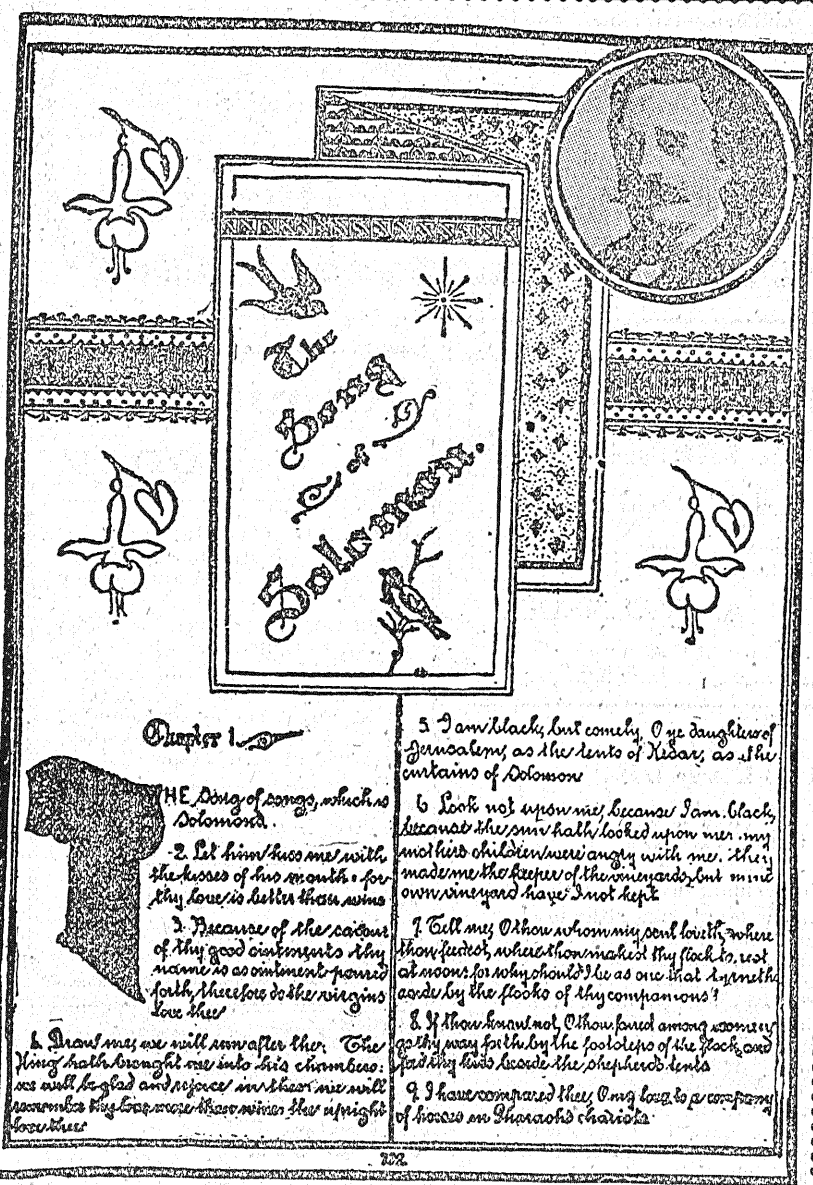 The
Song
of
Solomon.
Chapter 1.
THE Song of songs, which is
Solomons.
2. Let him kiss me with
the kisses of his mouth: for
thy love is better than wine
3. Because of the savour
of thy good ointments thy
name is as ointment poured
forth, therefore do the virgins
love thee
4. Draw me, we will run after thee: The
King hath brought me into his chambers:
we will be glad and rejoice in thee: we will
remember thy love more than wine: the upright
love thee
5. I am black, but comely, O ye daughters of
Jerusalem, as the tents of Kedar, as the
curtains of Solomon
6 Look not upon me, because I am black,
because the sun hath looked upon me: my
mothers children were angry with me. they
made me the keeper of the vineyards, but mine
own vineyard have I not kept
7. Tell me, O thou whom my soul loveth, where
thou feedest, where thou makest thy flock to rest
at noon: for why should I be as one that turneth
aside by the flocks of thy companions?
8. If thou know not, O thou fairest among women,
go thy way forth by the footsteps of the flock, and
feed thy kids beside the shepherds tents
9. I have compared thee, O my love, to a company
of horses in Pharaohs chariots